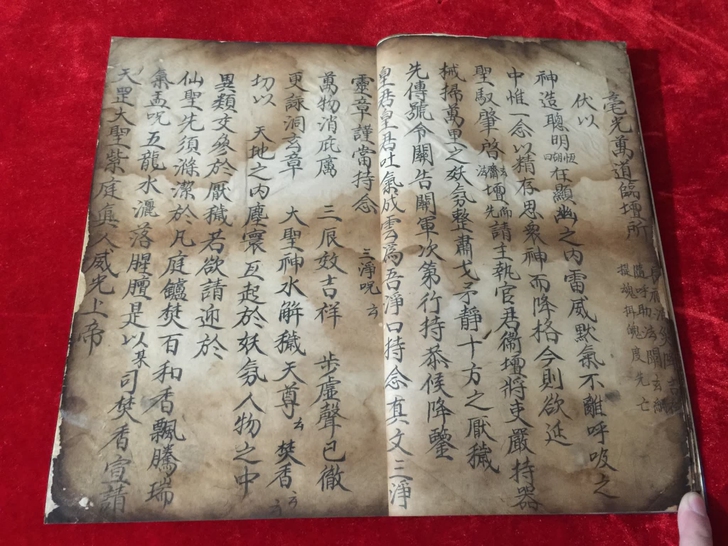 毫光萬道臨壇所
伏以
神造聰明恒在顯幽之內雷威默氣不離呼吸之
中惟一念以精存思衆神而降格今則欲延
聖馭肇啓壇先請主執官君衙壇將吏嚴持器
械掃萬里之妖氛整肅戈矛靜十方之厭穢
先傳號令關告關軍次第行持恭候降鑒
皇君皇君吐氣成雲爲吾淨口持念真文三淨
靈章謹當持念 三淨呪 云
萬物消疵厲 三辰效吉祥 步虛聲已徹
更詠洞玄章 大聖神水解穢天尊 云 焚香 云
切以 天地之內塵寰互起於妖氛人物之中
異類交發於厭穢若欲請迎於
仙聖先須滌潔於凡庭爐焚百和香飄騰瑞
氣盂呪五龍水灑落腥膻是以來司焚香宣請
天罡大聖紫庭真人威光上帝